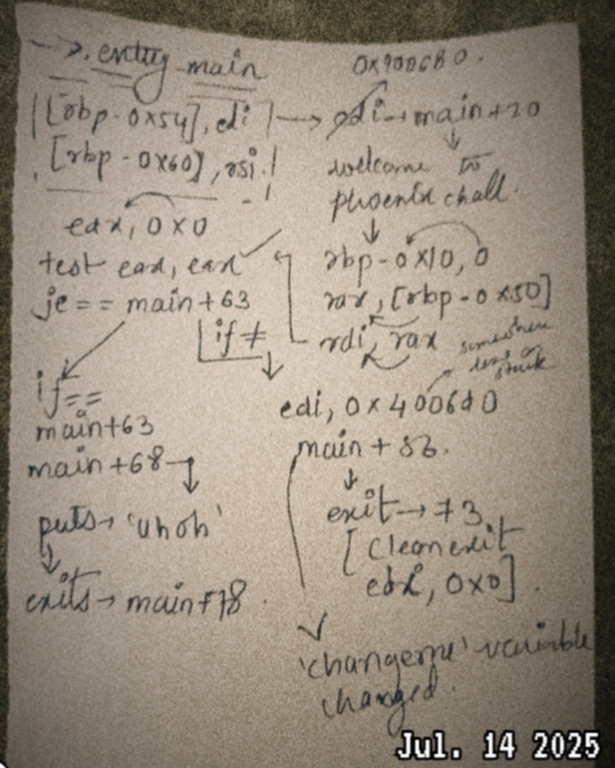 entry main
[rbp-0x54], edi
[rbp-0x60], rsi
eax, 0x0
test eax, eax
je == main+63
if ≠
if ==
main+63
main+68
puts → 'uh oh'
exits → main+78
edi → main+20
welcome to
phoenix chall.
rbp-0x10, 0
rax, [rbp-0x50]
rdi, rax
somewhere
edi, 0x4006d0
main+
exit →
[Clean exit
0x0]
'changeme' variable
changed.
Jul. 14 2025